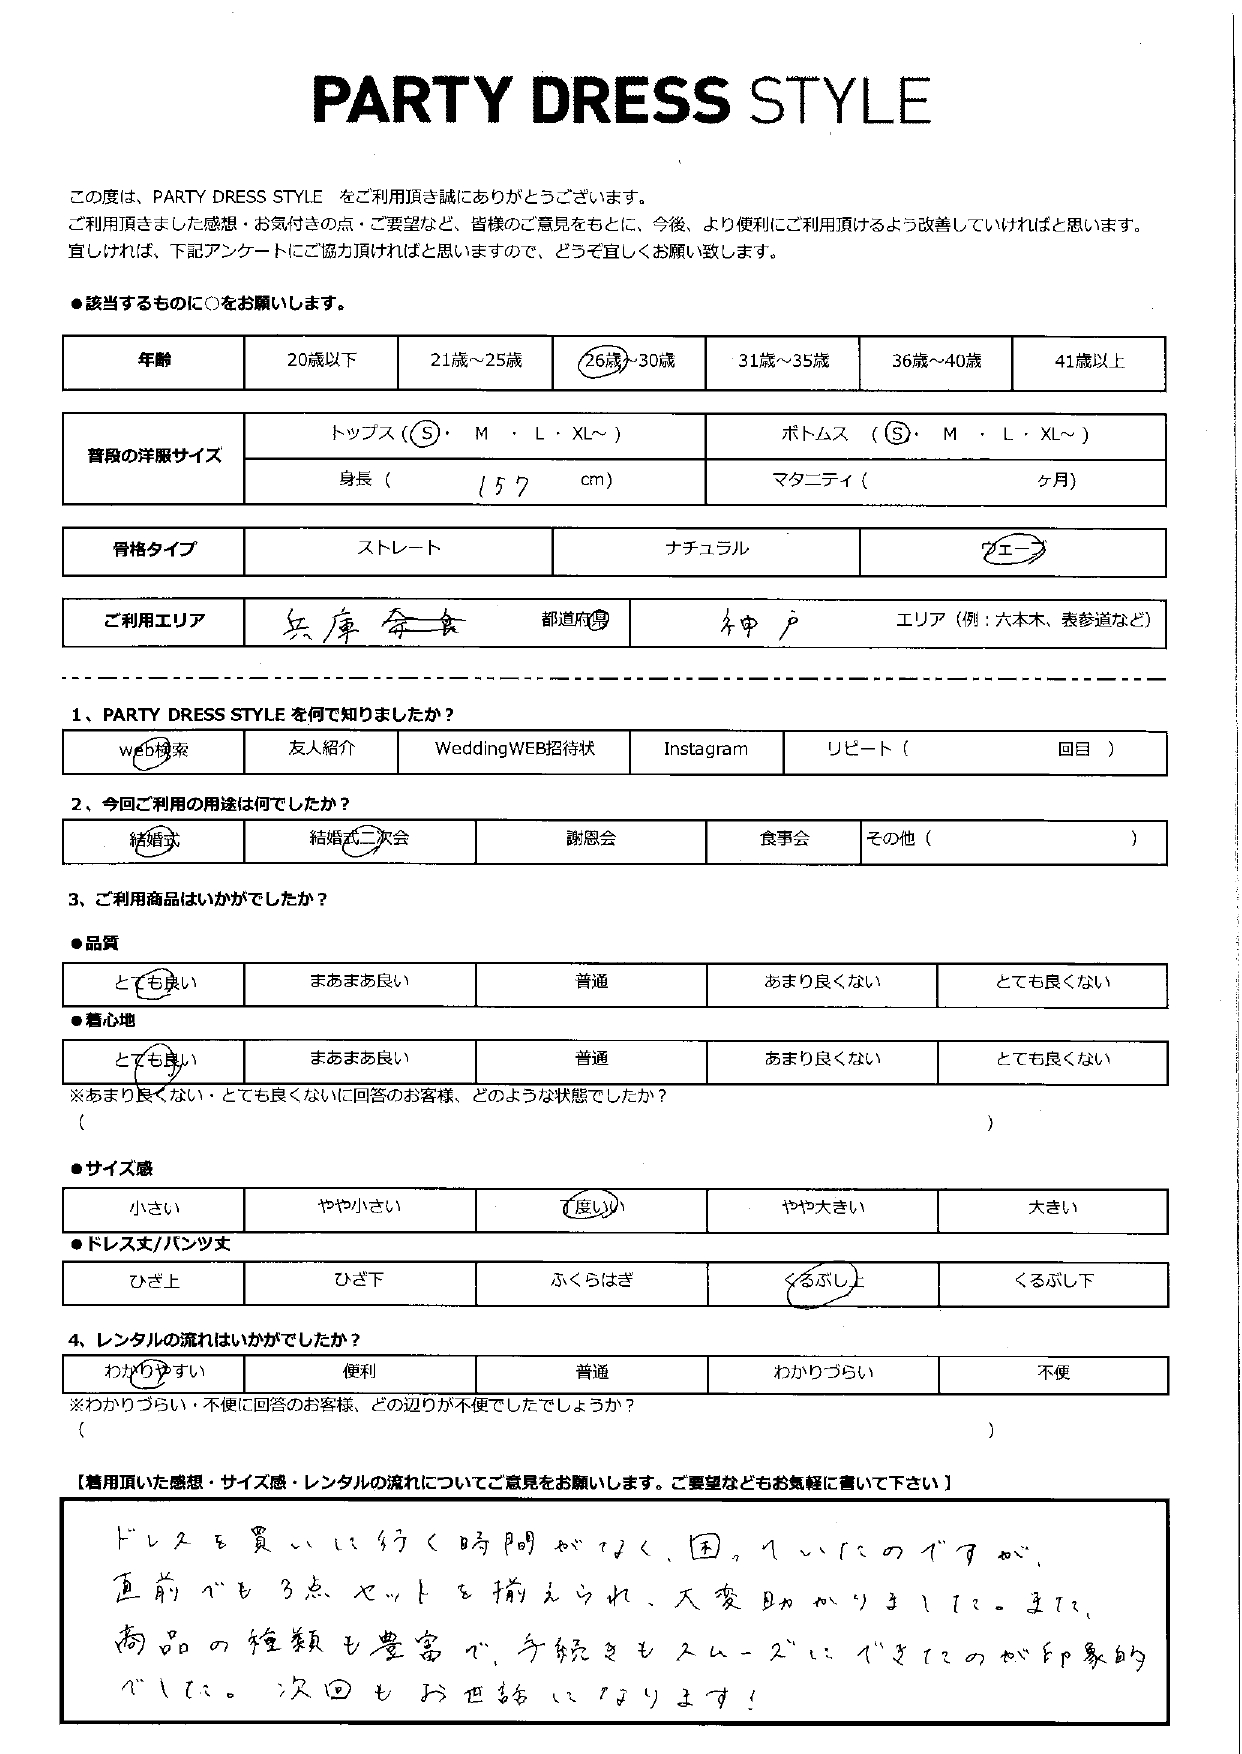 PARTY DRESS STYLE
この度は、PARTY DRESS STYLE をご利用頂き誠にありがとうございます。
ご利用頂きました感想・お気付きの点・ご要望など、皆様のご意見をもとに、今後、より便利にご利用頂けるよう改善していければと思います。
宜しければ、下記アンケートにご協力頂ければと思いますので、どうぞ宜しくお願い致します。
●該当するものに○をお願いします。
年齢 20歳以下 21歳～25歳 26歳～30歳 31歳～35歳 36歳～40歳 41歳以上
普段の洋服サイズ トップス (S・ M ・ L ・ XL～ ) ボトムス ( S・ M ・ L ・ XL～ )
身長 ( 157 cm) マタニティ ( ヶ月)
骨格タイプ ストレート ナチュラル ウェーブ
ご利用エリア 兵庫 都道府県 神戸 エリア（例：六本木、表参道など）
1、PARTY DRESS STYLE を何で知りましたか？
web検索 友人紹介 WeddingWEB招待状 Instagram リピート ( 回目 )
2、今回ご利用の用途は何でしたか？
結婚式 結婚式二次会 謝恩会 食事会 その他 ( )
3、ご利用商品はいかがでしたか？
●品質
とても良い まあまあ良い 普通 あまり良くない とても良くない
●着心地
とても良い まあまあ良い 普通 あまり良くない とても良くない
※あまり良くない・とても良くないに回答のお客様、どのような状態でしたか？
( )
●サイズ感
小さい やや小さい 丁度いい やや大きい 大きい
●ドレス丈/パンツ丈
ひざ上 ひざ下 ふくらはぎ くるぶし上 くるぶし下
4、レンタルの流れはいかがでしたか？
わかりやすい 便利 普通 わかりづらい 不便
※わかりづらい・不便に回答のお客様、どの辺りが不便でしたでしょうか？
( )
【着用頂いた感想・サイズ感・レンタルの流れについてご意見をお願いします。ご要望などもお気軽に書いて下さい】
ドレスを買いに行く時間がなく、困っていたのですが、
直前でも3点セットを揃えられ、大変助かりました。また、
商品の種類も豊富で、手続きもスムーズにできたのが印象的
でした。次回もお世話になります！